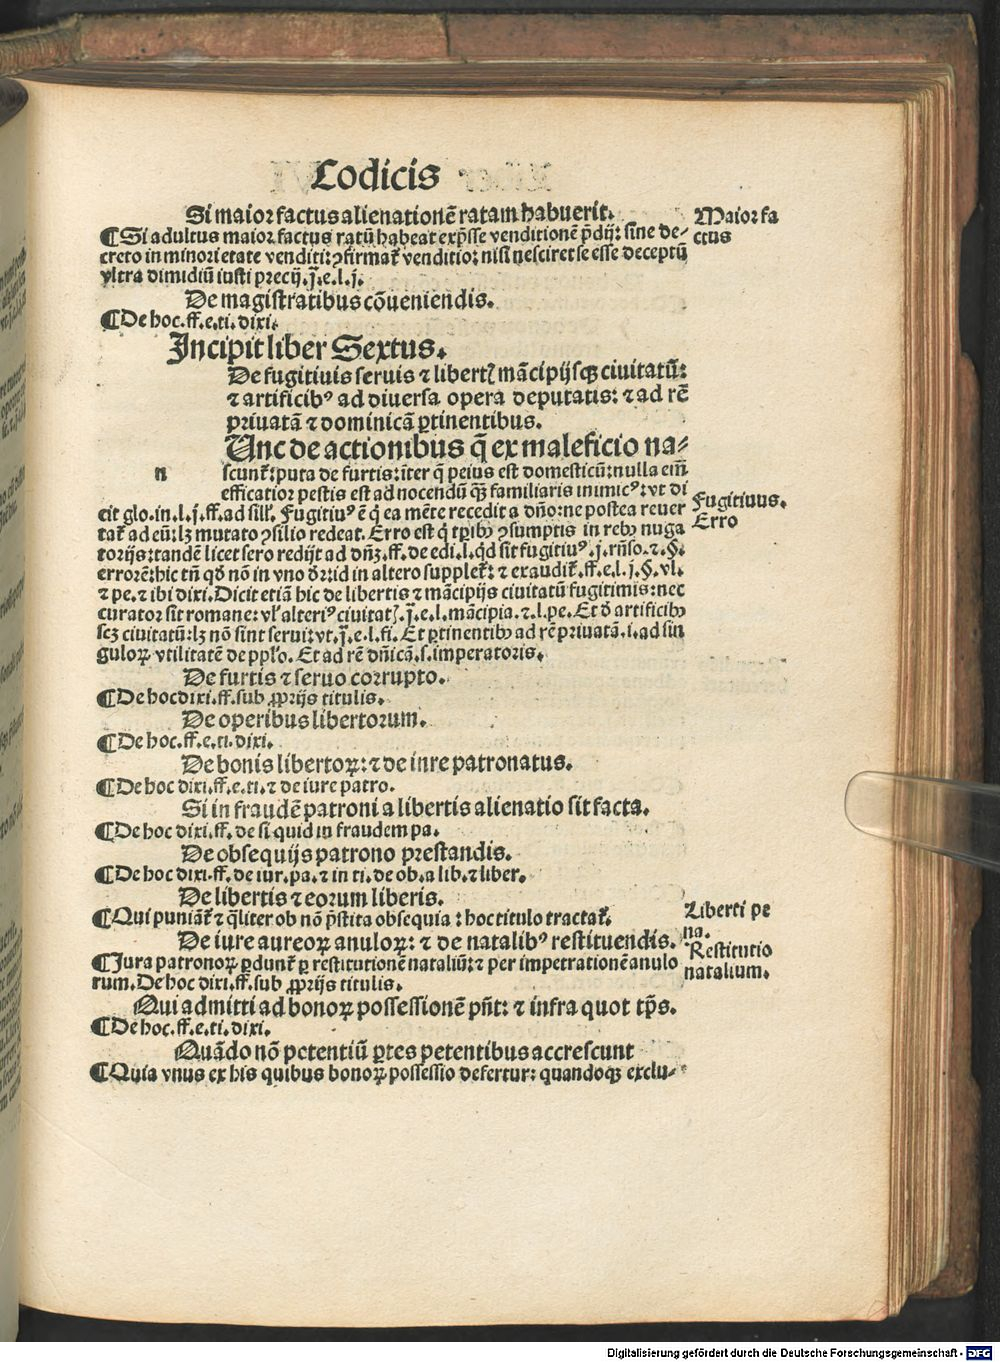 Codicis
Si maior factus alienationē ratam habuerit.
Maior fa
ctus
¶Si adultus maior factus ratū habeat exp̄sse venditionē p̄dij: sine de-
creto in minori etate venditi: ꝯfirmat᷑ venditio: nisi nesciret se esse deceptū
vltra dimidiū iusti precij.j̄.e.l.j.
De magistratibus cōueniendis.
¶De hoc.ff.e.ti.dixi.
Incipit liber Sextus.
De fugitiuis seruis ⁊ libertꝭ mācipijsqꝫ ciuitatū:
⁊ artificibꝰ ad diuersa opera deputatis: ⁊ ad rē
priuatā ⁊ dominicā ꝑtinentibus.
n
Unc de actionibus q̄ ex maleficio na-
scunt᷑: puta de furtis: iter q̄ peius est domesticū: nulla em̄
efficatior pestis est ad nocendū qꝫ familiaris inimicꝰ: vt di
cit glo.in.l.j.ff.ad sill. Fugitiuꝰ ē q̇ ea mēte recedit a dño: ne postea reuer
Fugitiuus.
tat᷑ ad eū: lꝫ mutato ꝯsilio redeat. Erro est q̇ ꝯsumptis in rebꝰ nuga
Erro
torijs: tandē licet sero redijt ad dñꝫ.ff.de edi.l.qd̄ sit fugitiuꝰ.j.rñso.⁊.§.
errorē: hic tñ qd̄ nō in vno dr̄: id in altero supplet᷑: ⁊ exaudit᷑.ff.e.l.j.§.vl.
⁊ pe.⁊ ibi dixi. Dicit etiā hic de libertis ⁊ mācipijs ciuitatū fugitimis: nec
curator sit romane: vl̓ alteriꝰ ciuitatꝭ.j̄.e.l.mācipia.⁊.l.pe. Et d̄ artificibꝰ
scꝫ ciuitatū: lꝫ nō sint serui: vt.j̄.e.l.fi. Et ꝑtinentibꝰ ad rē priuatā.i.ad sin
guloꝝ vtilitatē de pplo. Et ad rē dñicā.s.imperatoris.
De furtis ⁊ seruo corrupto.
¶De hoc dixi.ff.sub ꝓprijs titulis.
De operibus libertorum.
¶De hoc.ff.e.ti.dixi.
De bonis libertoꝝ: ⁊ de iure patronatus.
¶De hoc dixi.ff.e.ti.⁊ de iure patro.
Si in fraudē patroni a libertis alienatio sit facta.
¶De hoc dixi.ff.de si quid in fraudem pa.
De obsequijs patrono prestandis.
¶De hoc dixi.ff.de iur.pa.⁊ in ti.de ob.a lib.⁊ liber.
De libertis ⁊ eorum liberis.
¶Qui puniāt᷑ ⁊ q̄liter ob nō p̄stita obsequia: hoc titulo tractat᷑.
Liberti pe
na.
De iure aureoꝝ anuloꝝ: ⁊ de natalibꝰ restituendis.
Restitutio
natalium.
¶Jura patronoꝝ ꝑdunt᷑ ꝑ restitutionē nataliū: ⁊ per impetrationē anulo
rum. De hoc dixi.ff.sub ꝓprijs titulis.
Qui admitti ad bonoꝝ possessionē pñt: ⁊ infra quot tp̄s.
¶De hoc.ff.e.ti.dixi.
Quādo nō petentiū ꝑtes petentibus accrescunt
¶Quia vnus ex his quibus bonoꝝ possessio defertur: quandoqꝫ exclu-
Digitalisierung gefördert durch die Deutsche Forschungsgemeinschaft - DFG